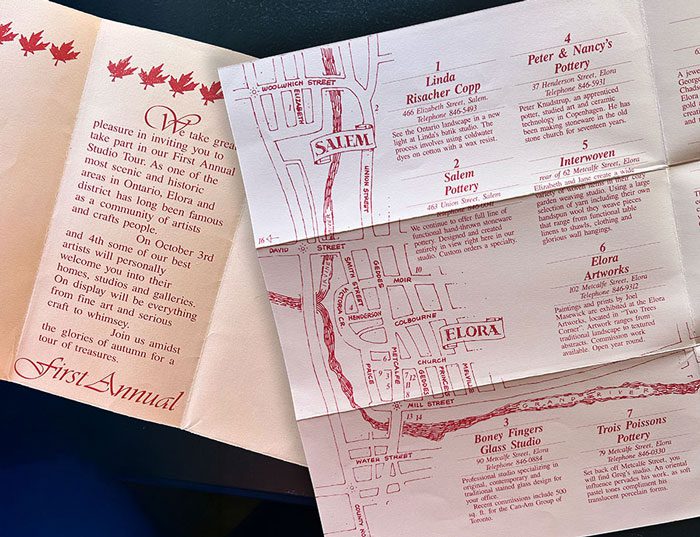 We take great
pleasure in inviting you to
take part in our First Annual
Studio Tour. As one of the
most scenic and historic
areas in Ontario, Elora and
district has long been famous
as a community of artists
and crafts people.
On October 3rd
and 4th some of our best
artists will personally
welcome you into their
homes, studios and galleries.
On display will be everything
from fine art and serious
craft to whimsey.
Join us amidst
the glories of autumn for a
tour of treasures.
First Annual
WOOLWHICH STREET
ELIZABETH
2
SALEM
UNION STREET
16
DAVID STREET
IRVINE
SMITH STREET
GEDDES
10
MOIR
VICTORIA CR.
HENDERSON
COLBOURNE
ELORA
CHURCH
PRICE
METCALFE
GEDDES
PRINCESS
MELVILLE
MILL STREET
13 14
GRAND RIVER
WATER STREET
COUNTY RO
1
Linda
Risacher Copp
466 Elizabeth Street, Salem.
Telephone 846-5493
See the Ontario landscape in a new
light at Linda's batik studio. The
process involves using coldwater
dyes on cotton with a wax resist.
2
Salem
Pottery
463 Union Street, Salem
We continue to offer full line of
functional hand-thrown stoneware
pottery. Designed and created
entirely in view right here in our
studio. Custom orders a specialty.
3
Boney Fingers
Glass Studio
90 Metcalfe Street, Elora
Telephone 846-0884
Professional studio specializing in
original, contemporary and
traditional stained glass design for
your office.
Recent commissions include 500
sq. ft. for the Can-Am Group of
Toronto.
4
Peter & Nancy's
Pottery
37 Henderson Street, Elora
Telephone 846-5931
Peter Knudstrup, an apprenticed
potter, studied art and ceramic
technology in Copenhagen. He has
been making stoneware in the old
stone church for seventeen years.
5
Interwoven
rear of 62 Metcalfe Street, Elora
Elizabeth and Jane create a wide
variety of woven items in their cozy
garden weaving studio. Using a large
selection of yarn including their own
handspun wool they weave pieces
that range from functional table
linens to shawls, clothing and
glorious wall hangings.
6
Elora
Artworks
102 Metcalfe Street, Elora
Telephone 846-9312
Paintings and prints by Joel
Masewick are exhibited at the Elora
Artworks, located in "Two Trees
Corner". Artwork ranges from
traditional landscape to textured
abstracts. Commission work
available. Open year round.
7
Trois Poissons
Pottery
79 Metcalfe Street, Elora
Telephone 846-0330
Set back off Metcalfe Street, you
will find Greg's studio. An oriental
influence pervades his work, as soft
pastel tones compliment his
translucent porcelain forms.
A jewe
George
Chads
Elora
gold